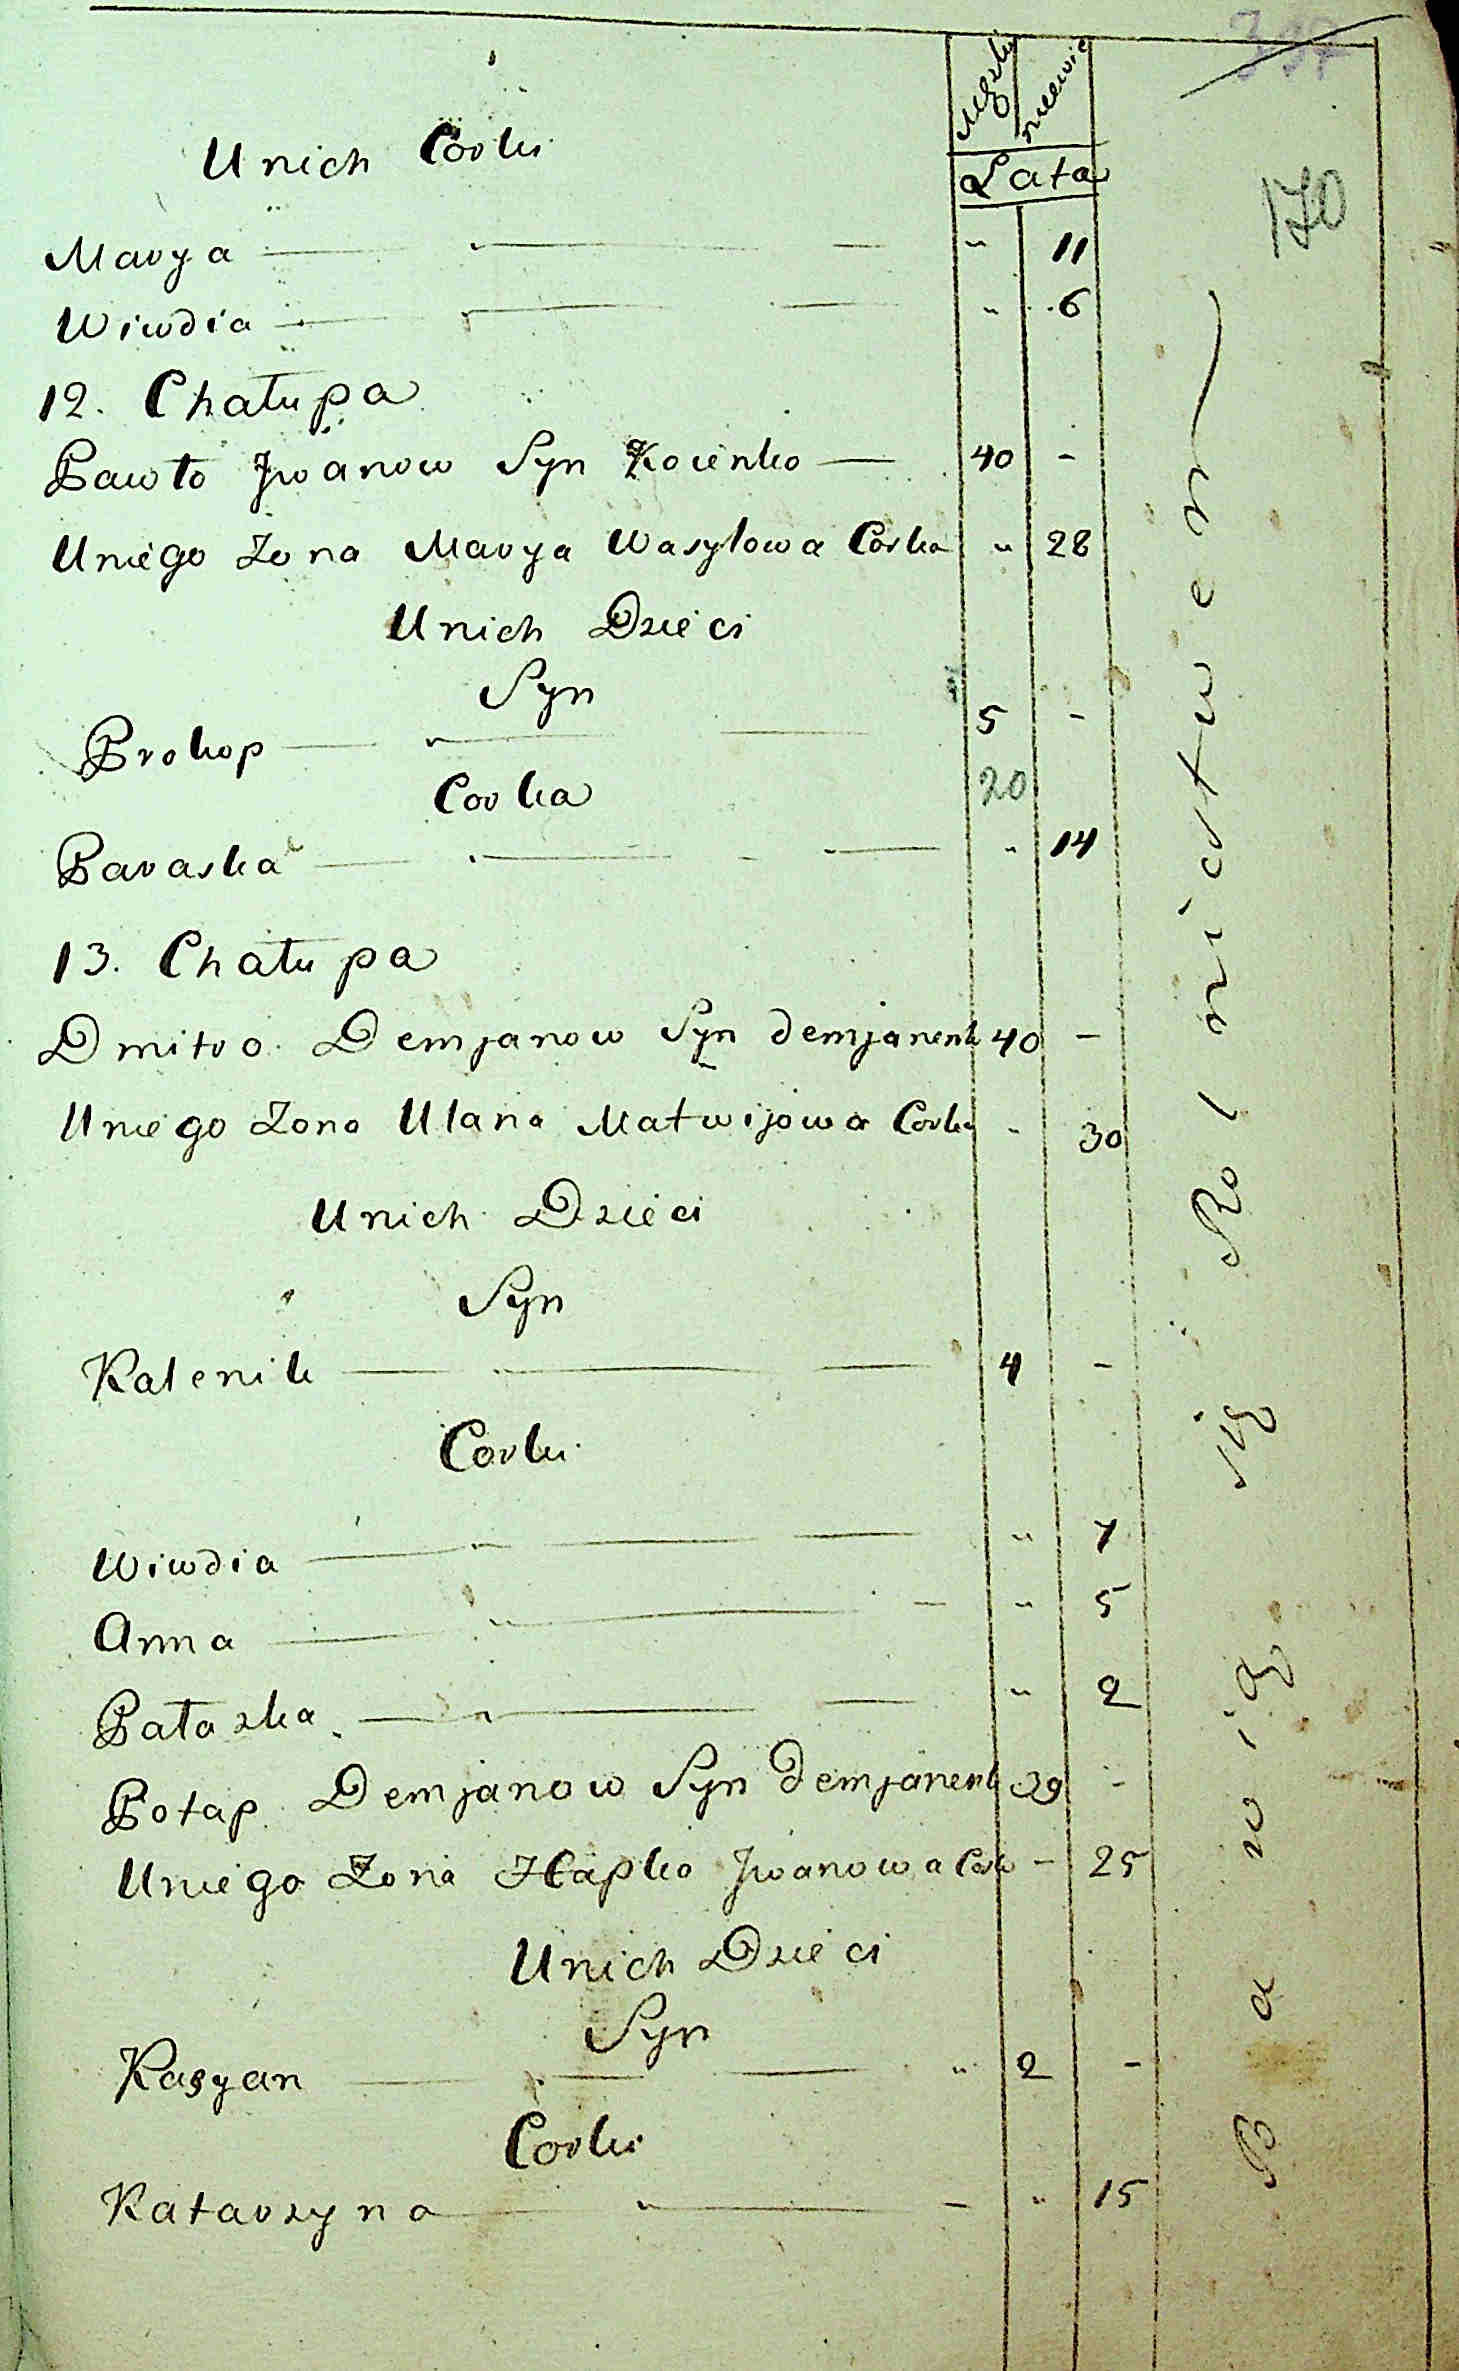 397
Męzka niewie
Lata
170
Unich Corki
Marya — " — " 11
Wiwdia — " — " 6
12. Chałupa
Pawło Jwanow Syn Kocenko — 40 -
Uniego Zona Marya Wasylowa Corka " 28
Unich Dzieci
Syn
Prokop — " — 5 -
20
Corka
Paraska — " — " 14
13. Chałupa
Dmitro Demjanow Syn demjanenk 40 -
Uniego Zona Ulana Matwijowa Corka " 30
Unich Dzieci
Syn
Kalenik — " — 4 -
Corki
Wiwdia — " — " 7
Anna — " — " 5
Pałazka — " — " 2
Potap Demjanow Syn demjanenk 39 -
Uniego Zona Hapka Jwanowa Cork - 25
Unich Dzieci
Syn
Kasyan — " — " 2 -
Corki
Katarzyna — " — " 15
Bawią się Rolnictwem